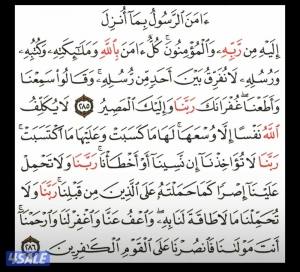 ءَامَنَ ٱلرَّسُولُ بِمَآ أُنزِلَ
إِلَيْهِ مِن رَّبِّهِۦ وَٱلْمُؤْمِنُونَ ۚ كُلٌّ ءَامَنَ بِٱللَّهِ وَمَلَـٰٓئِكَتِهِۦ وَكُتُبِهِۦ
وَرُسُلِهِۦ لَا نُفَرِّقُ بَيْنَ أَحَدٍ مِّن رُّسُلِهِۦ ۚ وَقَالُوا۟ سَمِعْنَا
وَأَطَعْنَا ۖ غُفْرَانَكَ رَبَّنَا وَإِلَيْكَ ٱلْمَصِيرُ ٢٨٥ لَا يُكَلِّفُ
ٱللَّهُ نَفْسًا إِلَّا وُسْعَهَا ۚ لَهَا مَا كَسَبَتْ وَعَلَيْهَا مَا ٱكْتَسَبَتْ ۗ
رَبَّنَا لَا تُؤَاخِذْنَآ إِن نَّسِينَآ أَوْ أَخْطَأْنَا ۚ رَبَّنَا وَلَا تَحْمِلْ
عَلَيْنَآ إِصْرًا كَمَا حَمَلْتَهُۥ عَلَى ٱلَّذِينَ مِن قَبْلِنَا ۚ رَبَّنَا وَلَا
تُحَمِّلْنَا مَا لَا طَاقَةَ لَنَا بِهِۦ ۖ وَٱعْفُ عَنَّا وَٱغْفِرْ لَنَا وَٱرْحَمْنَآ ۚ
أَنتَ مَوْلَىٰنَا فَٱنصُرْنَا عَلَى ٱلْقَوْمِ ٱلْكَـٰفِرِينَ ٢٨٦
4SALE